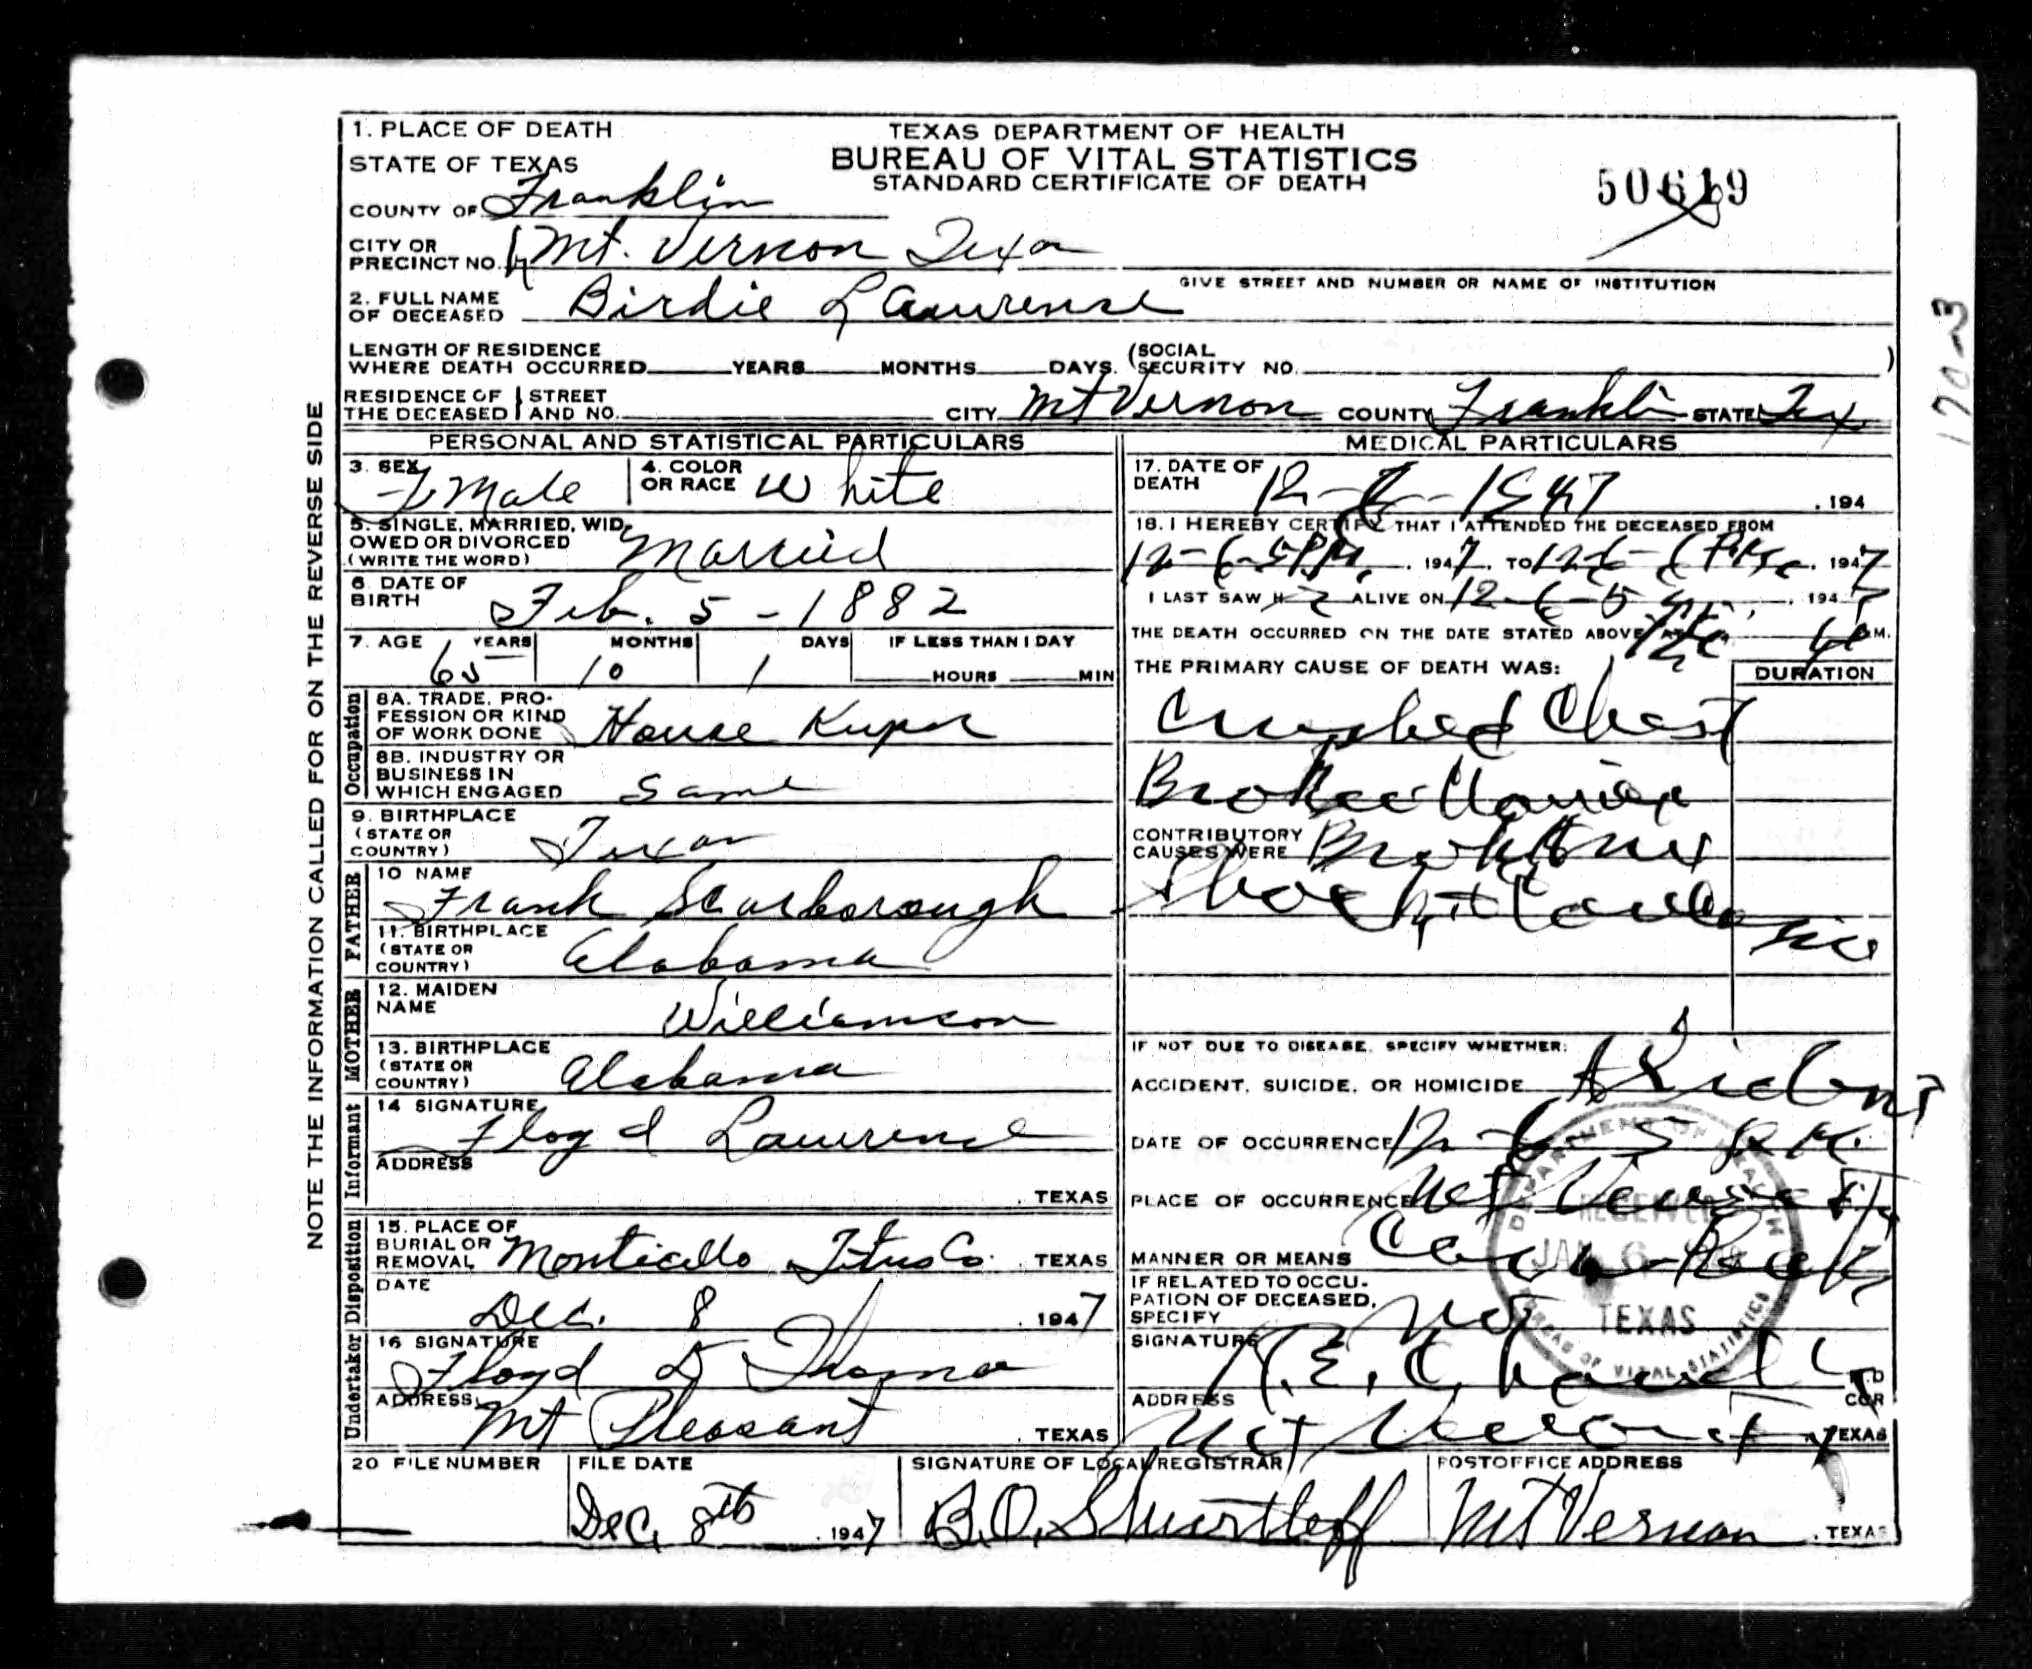 1. PLACE OF DEATH
STATE OF TEXAS
COUNTY OF Franklin
CITY OR PRECINCT NO. Mt. Vernon Texa
TEXAS DEPARTMENT OF HEALTH
BUREAU OF VITAL STATISTICS
STANDARD CERTIFICATE OF DEATH
50619
GIVE STREET AND NUMBER OR NAME OF INSTITUTION
2. FULL NAME OF DECEASED Birdie Lawrense
170-3
LENGTH OF RESIDENCE WHERE DEATH OCCURRED YEARS MONTHS DAYS. (SOCIAL SECURITY NO. )
RESIDENCE OF THE DECEASED STREET AND NO. CITY Mt Vernon COUNTY Franklin STATE Tex
NOTE THE INFORMATION CALLED FOR ON THE REVERSE SIDE
PERSONAL AND STATISTICAL PARTICULARS
3. SEX FMale 4. COLOR OR RACE White
5. SINGLE, MARRIED, WIDOWED OR DIVORCED (WRITE THE WORD) Married
6. DATE OF BIRTH Feb. 5 - 1882
7. AGE YEARS MONTHS DAYS IF LESS THAN 1 DAY
65 10 1 HOURS MIN
Occupation
8A. TRADE, PROFESSION OR KIND OF WORK DONE House Keeper
8B. INDUSTRY OR BUSINESS IN WHICH ENGAGED Same
9. BIRTHPLACE (STATE OR COUNTRY) Texas
FATHER
10 NAME Frank Scarborough
11. BIRTHPLACE (STATE OR COUNTRY) Alabama
MOTHER
12. MAIDEN NAME Williamson
13. BIRTHPLACE (STATE OR COUNTRY) Alabama
Informant
14 SIGNATURE Floyd Lawrence
ADDRESS . TEXAS
Disposition
15. PLACE OF BURIAL OR REMOVAL Monticello Titus Co. . TEXAS
DATE Dec. 8 . 1947
Undertaker
16 SIGNATURE Floyd D Thomas
ADDRESS Mt Pleasant . TEXAS
MEDICAL PARTICULARS
17. DATE OF DEATH 12-6-1947 . 194
18. I HEREBY CERTIFY THAT I ATTENDED THE DECEASED FROM
12-6-5PM. . 1947. TO 12-6-6PM. . 1947
I LAST SAW H ALIVE ON 12-6-5 . 1947
THE DEATH OCCURRED ON THE DATE STATED ABOVE AT M.
THE PRIMARY CAUSE OF DEATH WAS: DURATION
Crushed Chest
Broken
CONTRIBUTORY CAUSES WERE Broken
Shock
IF NOT DUE TO DISEASE, SPECIFY WHETHER:
ACCIDENT, SUICIDE, OR HOMICIDE Axident
DATE OF OCCURRENCE 12-6-5 P.M.
PLACE OF OCCURRENCE Mt Vernon
MANNER OR MEANS Car
IF RELATED TO OCCUPATION OF DECEASED, SPECIFY Not
SIGNATURE R. E. M.D COR
ADDRESS Mt Vernon TEXAS
DEPARTMENT OF HEALTH
RECEIVED
JAN 6
TEXAS
BUREAU OF VITAL STATISTICS
20 FILE NUMBER FILE DATE SIGNATURE OF LOCAL REGISTRAR POSTOFFICE ADDRESS
Dec. 8th . 1947 B.O. Shurtleff Mt Vernon . TEXAS